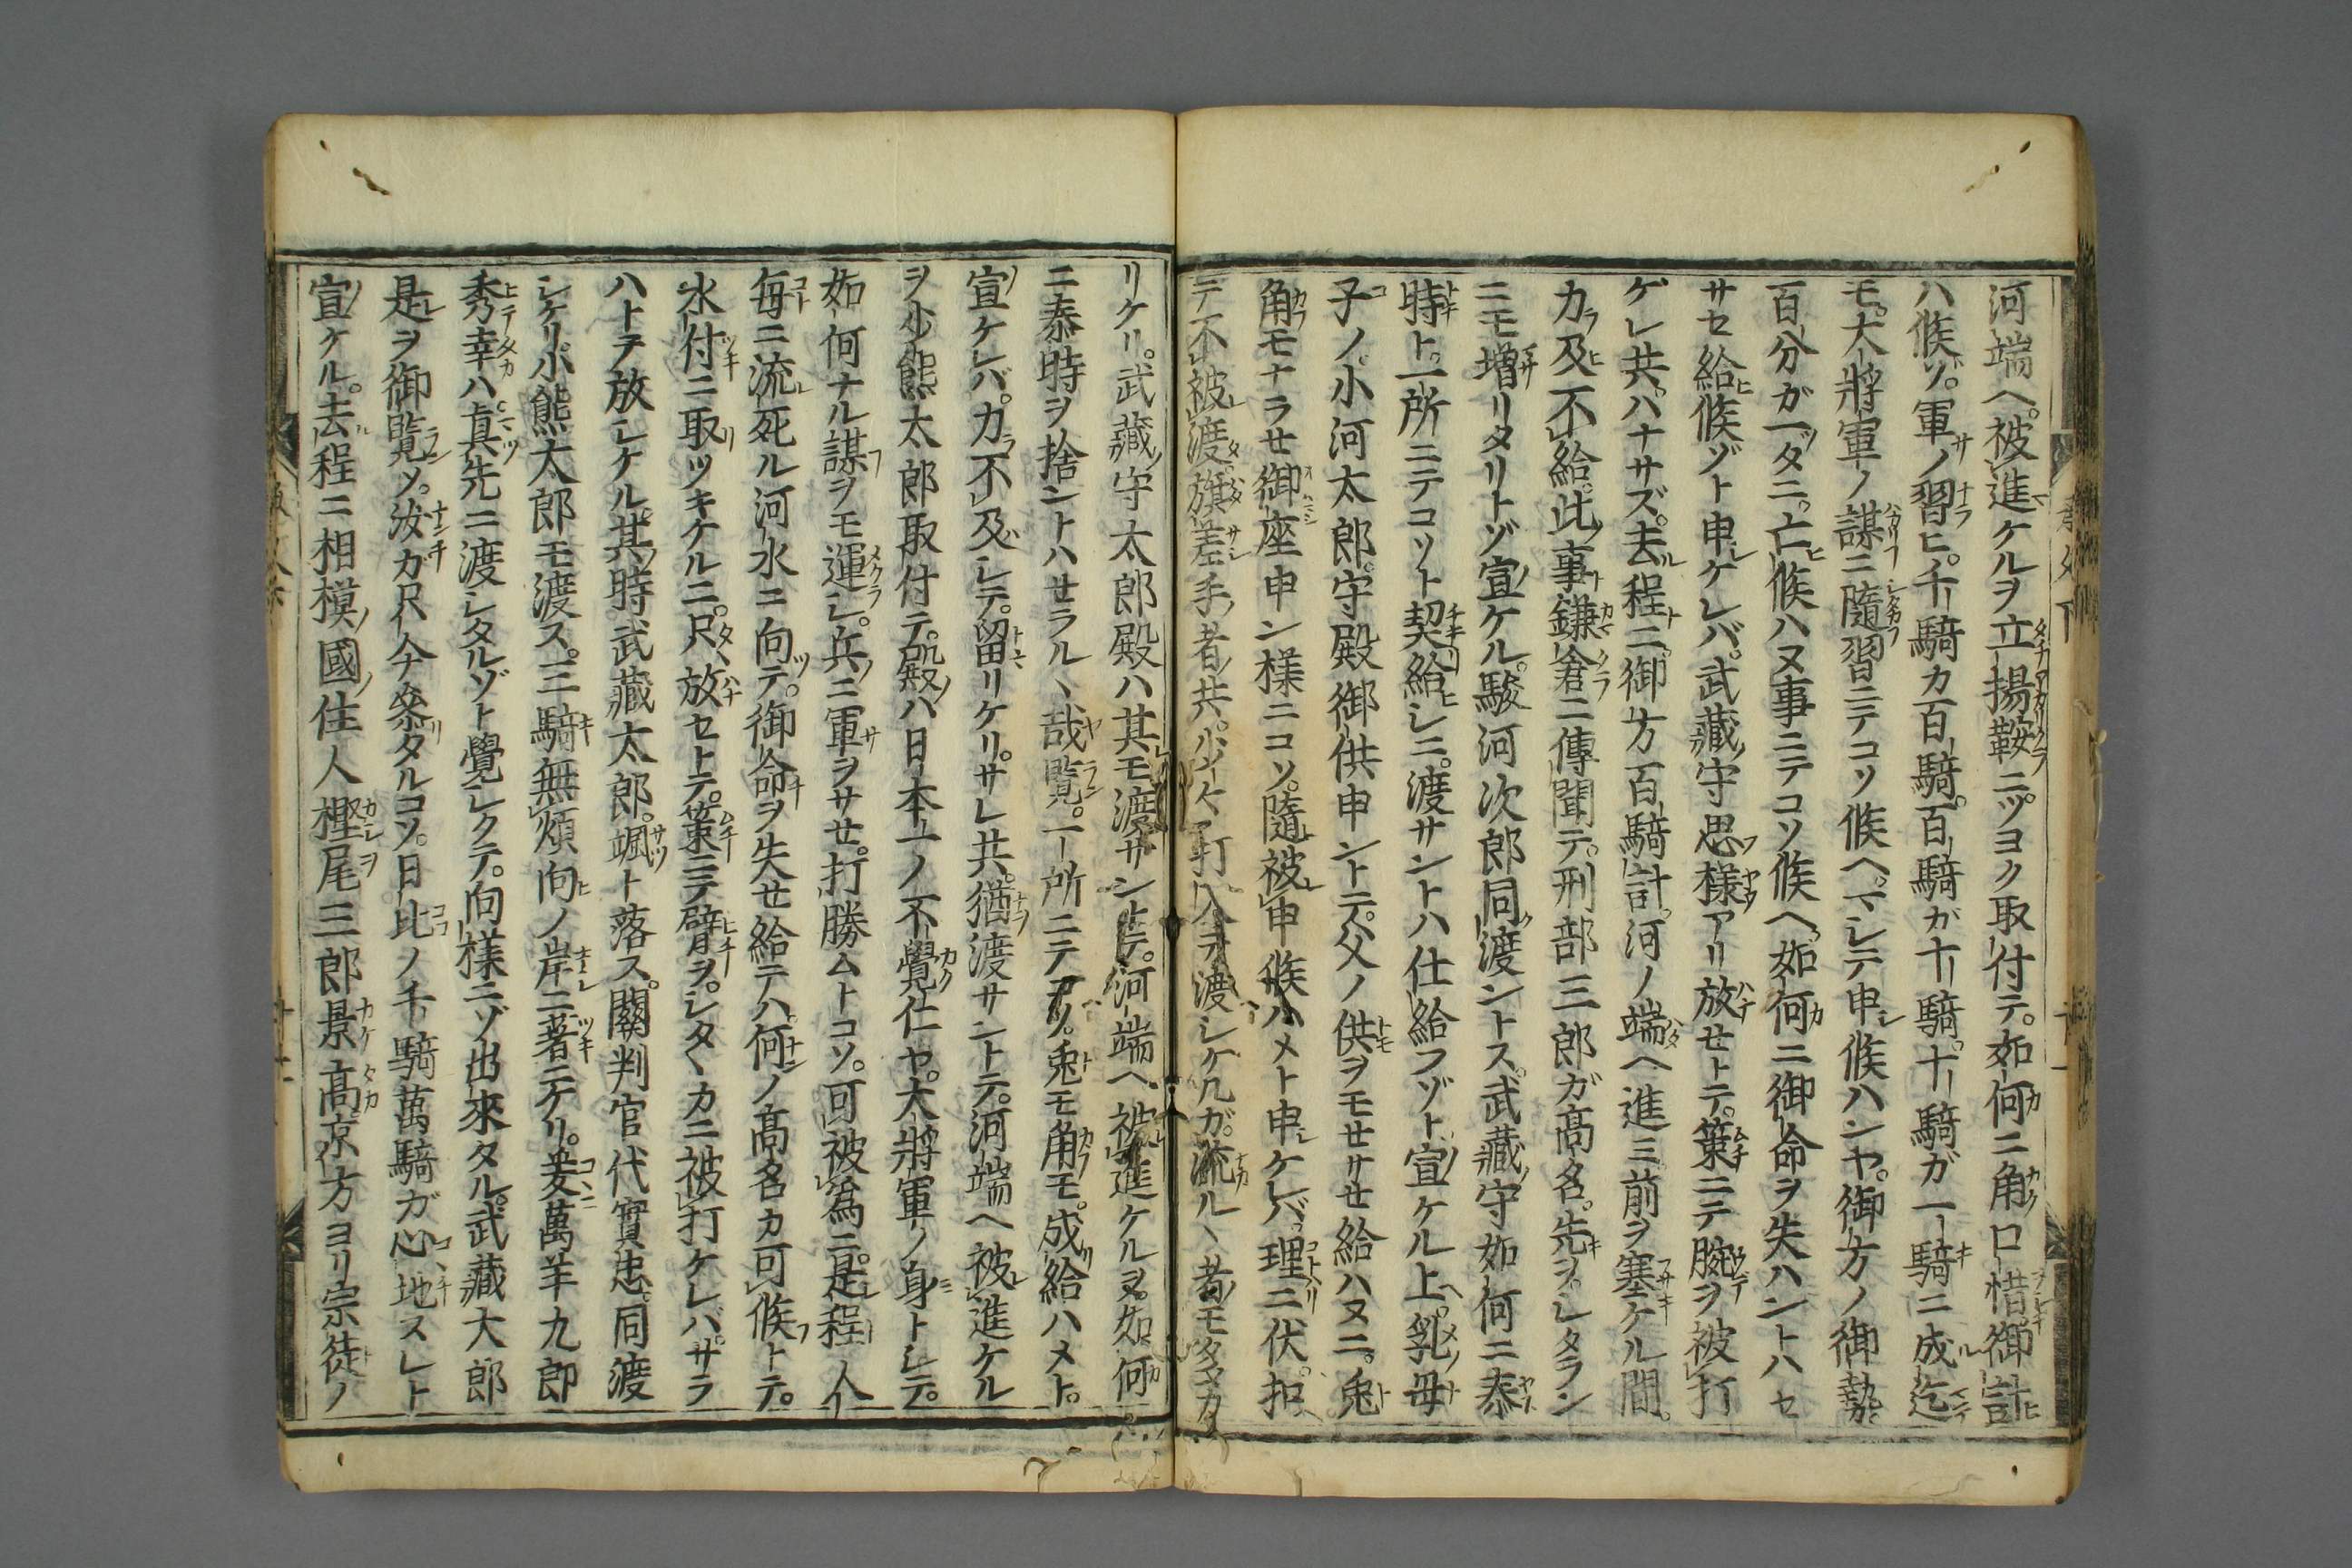 河端ヘ。被進ケルヲ立揚鞍ニツヨク取付テ。如何ニ角口惜御計
ハ候ゾ。軍ノ習ヒ。千騎カ百騎。百騎ガ十騎。十騎ガ一騎ニ成迄
モ。大將軍ノ謀ニ隨習ニテコソ候ヘ。マシテ申候ハンヤ。御方ノ御勢
百分ガ一ダニ。亡候ハヌ事ニテコソ候ヘ。如何ニ御命ヲ失ハントハセ
サセ給候ゾト申ケレバ。武藏守思様アリ放セトテ。策ニテ腕ヲ被打
ゲレ共。ハナサズ。去程ニ。御方百騎計。河ノ端ヘ進ミ前ヲ塞ケル間。
カ及不給。此事鎌倉ニ傳聞テ。刑部三郎ガ高名。先ヲシタラン
ニモ増リタリトゾ宣ケル。駿河次郎同渡ントス。武藏守如何ニ泰
時ト。一所ニテコソト契給シニ。渡サントハ仕給フゾト宣ケル上。乳母
子ノ。小河太郎。守殿御供申ントテ。父ノ供ヲモせサせ給ハヌニ。兎
角モナラせ御座申ン様ニコソ。隨被申候ハメト申ケレバ。理ニ伏。扣
テ不被渡旗差手ノ者共。少々打入テ渡シケルガ。流ルヽ者モ多カ
リケリ。武藏守太郎殿ハ其モ渡サントテ。河端ヘ被進ケルヲ。如何
ニ泰時ヲ捨ントハせラルヽ哉覽。一所ニテコソ。兎モ角モ。成給ハメト。
宣ケレバ。力不及シテ。留リケリ。サレ共。猶渡サントテ。河端ヘ被進ケル
ヲ少熊太郎取付テ。殿ハ日本一ノ不覺仁ヤ。大將軍ノ身トシテ。
如何ナル謀ヲモ運シ。兵ニ軍ヲサせ。打勝ムトコソ。可被爲ニ。是程人
毎ニ流死ル河水ニ向テ。御命ヲ失せ給テハ。何ノ高名カ可候トテ。
水付ニ取ツキケルニ。只放セトテ。策ニテ臂ヲ。シタヽカニ被打ケレバ。サラ
ハトテ放シケル。其時武藏太郎。颯ト落ス。關判官代實忠。同渡
シケリ。小熊太郎モ渡ス。三騎無煩向ノ岸ニ著ニケリ。爰萬年九郎
秀幸ハ。真先ニ渡シタルゾト覺シクテ。向樣ニゾ出來タル。武藏大郎
是ヲ御覽ソ。汝カ只今參タルコソ。日比ノ千騎萬騎ガ心地スレト
宣ケル。去程ニ相模國ノ住人樫尾三郎景高。京方ヨリ宗徒ノ